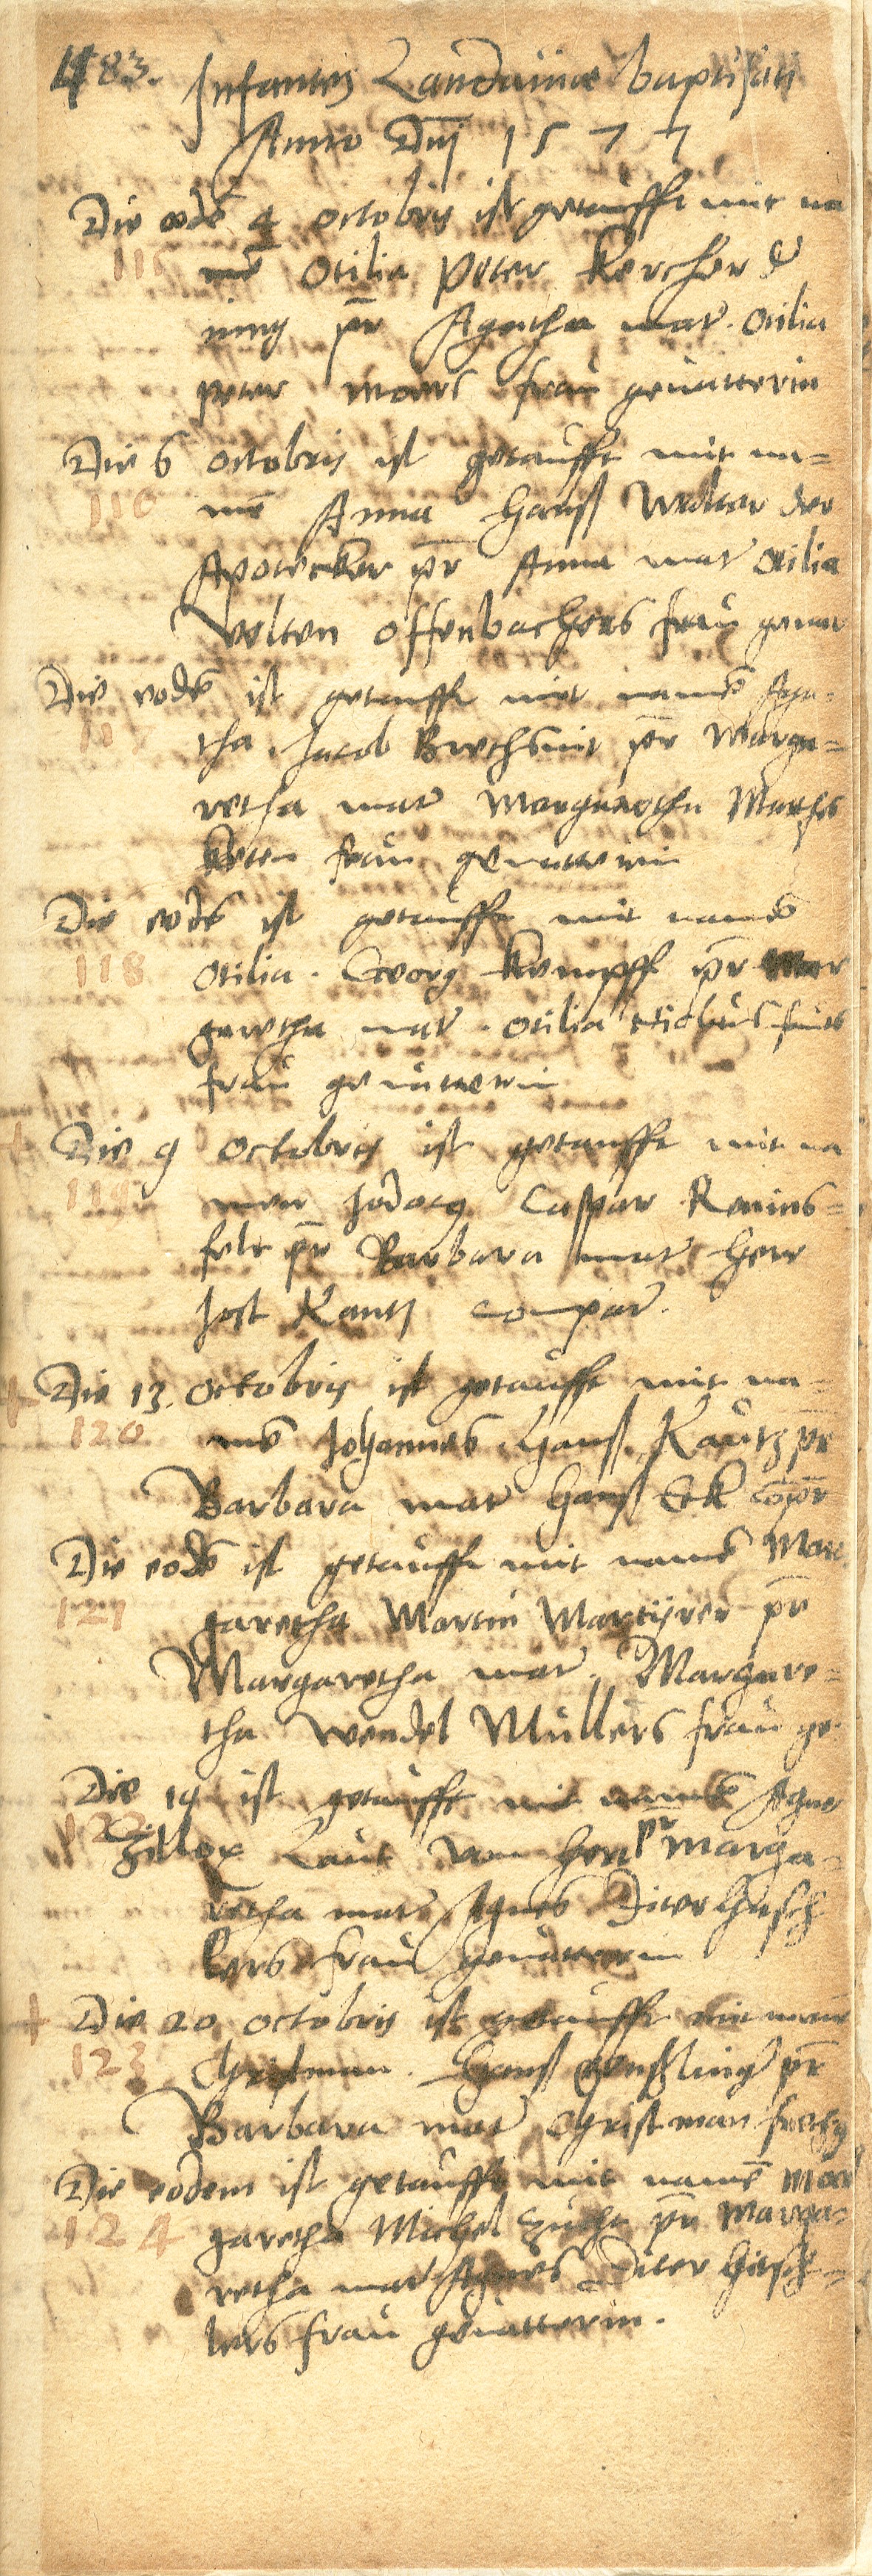 483.
Infantes Landauiae baptisati
Anno Dnj 1577
Die eodē 4 octobris ist getaufft mit na
115
mē Otilia Peter Kercher
pr Agatha mat. Otilia
peter moers frau geuatterin
Die 6 octobris ist getaufft mit na=
116
mē Anna Hanß Welter der
Apotecker pr Anna mat Otilia
Velten Offenbachers frau geuat
Die eodē ist getaufft mit namē Aga=
117
tha Jacob pr Marga=
retha mat Margaretha
frau geuatterin
Die eodē ist getaufft mit namē
118
Otilia. Georg Kempff pr Mar
garetha mat. Otilia
frau geuatterin
Die 9 octobris ist getaufft mit na
119
men Jodocus Caspar Reins=
felt pr Barbara mat Herr
Jost Kantz compar.
Die 13. octobris ist getaufft mit na=
120
mē Johannes Hanß Kautz pr
Barbara mat Hanß Eck copr
Die eodē ist getaufft mit namē Mar
121
garetha Martin Martyrer pr
Margaretha mat. Margare=
tha Wendel Müllers frau ge
Die 19 ist getaufft mit namē Agnes
122
Zillox Laut von pr Marga=
retha mat Agnes Diter Hitsch
lers frau geuatterin
Die 20 octobris ist getaufft mit namē
123
Christman. Hanß pr
Barbara mat Christman
Die eodem ist getaufft mit namē Mar
124
garetha Michel pr Marga=
retha mat Agnes Diter Hitsch=
lers frau geuatterin.